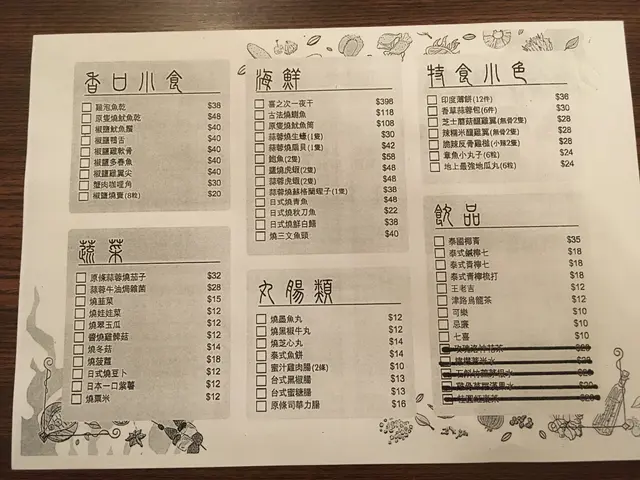 香口小食
雞泡魚乾 $38
原隻燒魷魚乾 $48
椒鹽魷魚鬚 $40
椒鹽鴨舌 $40
椒鹽雞軟骨 $40
椒鹽多春魚 $40
椒鹽雞翼尖 $40
蟹肉咖喱角 $30
椒鹽燒賣(8粒) $20
蔬菜
原條蒜蓉燒茄子 $32
蒜蓉牛油焗雜菌 $28
燒韮菜 $15
燒娃娃菜 $12
燒翠玉瓜 $12
醬燒雞髀菇 $12
燒冬菇 $14
燒菠蘿 $18
日式燒豆卜 $12
日本一口紫薯 $12
燒粟米 $12
海鮮
喜之次一夜干 $398
古法燒鱔魚 $118
原隻燒魷魚筒 $108
蒜蓉燒生蠔(1隻) $30
蒜蓉燒扇貝(1隻) $42
鮑魚(2隻) $58
鹽燒虎蝦(2隻) $48
蒜蓉虎蝦(2隻) $48
蒜蓉燒蘇格蘭蟶子(1隻) $38
日式燒青魚 $48
日式燒秋刀魚 $22
日式燒鮮白鱔 $38
燒三文魚頭 $40
丸腸類
燒墨魚丸 $12
燒黑椒牛丸 $12
燒芝心丸 $14
泰式魚餅 $14
蜜汁雞肉腸(2條) $10
台式黑椒腸 $13
台式蜜糖腸 $13
原條司華力腸 $16
特食小色
印度薄餅(12件) $36
香草蒜蓉包(6件) $30
芝士蘑菇釀雞翼(無骨2隻) $28
辣糯米釀雞翼(無骨2隻) $28
脆辣反骨雞槌(小辣2隻) $28
章魚小丸子(6粒) $24
地上最強地瓜丸(6粒) $24
飲品
泰國椰青 $35
泰式鹹檸七 $18
泰式青檸七 $18
泰式青檸梳打 $18
王老吉 $12
津路烏龍茶 $12
可樂 $10
忌廉 $10
七喜 $10